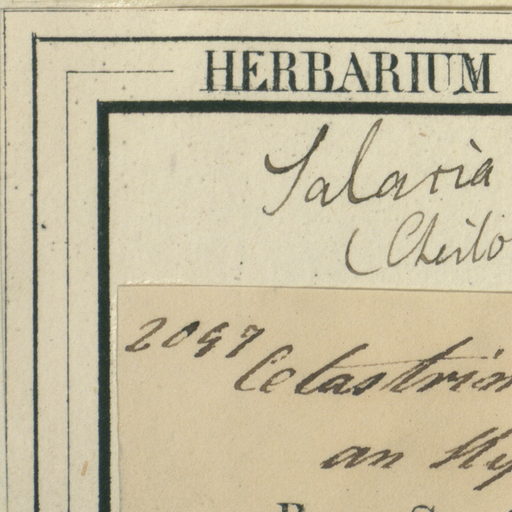 HERBARIUM
Salacia
(Cheilo
2097
Celastrin
an Hy